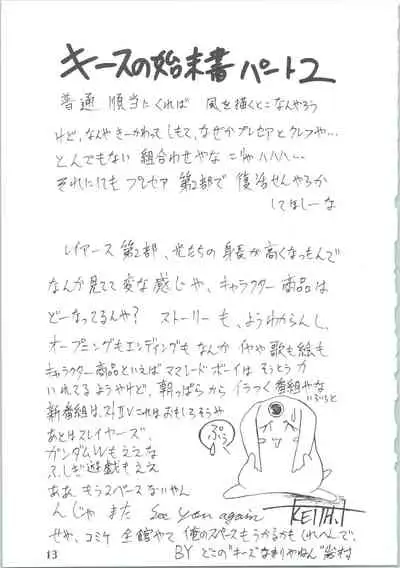 キースの始末書 パート2
普通 順当にくれば 風を描くとこなんやろう
けど、なんや きーかわって しもて、なぜか プレセアとクレフや…
とんでもない 組合わせやな こりゃ ハハハ…
それにしても プレセア 第2部で 復活せんやろか
してほしーな
レイアース 第2部、光たちの 身長が高くなったもんで
なんか見てて 変な感じや、キャラクター 商品は
どーなってるんや? ストーリーも、ようわからんし、
オープニングもエンディングも なんか イヤや 歌も絵も
キャラクター商品といえば ママレードボーイは そうとうか
いれてるようやけど、朝っぱらから イラつく番組やな
いろいろと
新番組は、ストⅡV これはおもしろそうや
あとはスレイヤーズ、
ガンダムWもええな
ふしぎ遊戯もええ
ああ もうスペースないやん
ぷぅ
んじゃ また See you again KEITH.T
せや、コミケ 全館やて 俺のスペースもうかるかもしれへんで、
13
BY どこの"キーズなまりやねん" 岩村